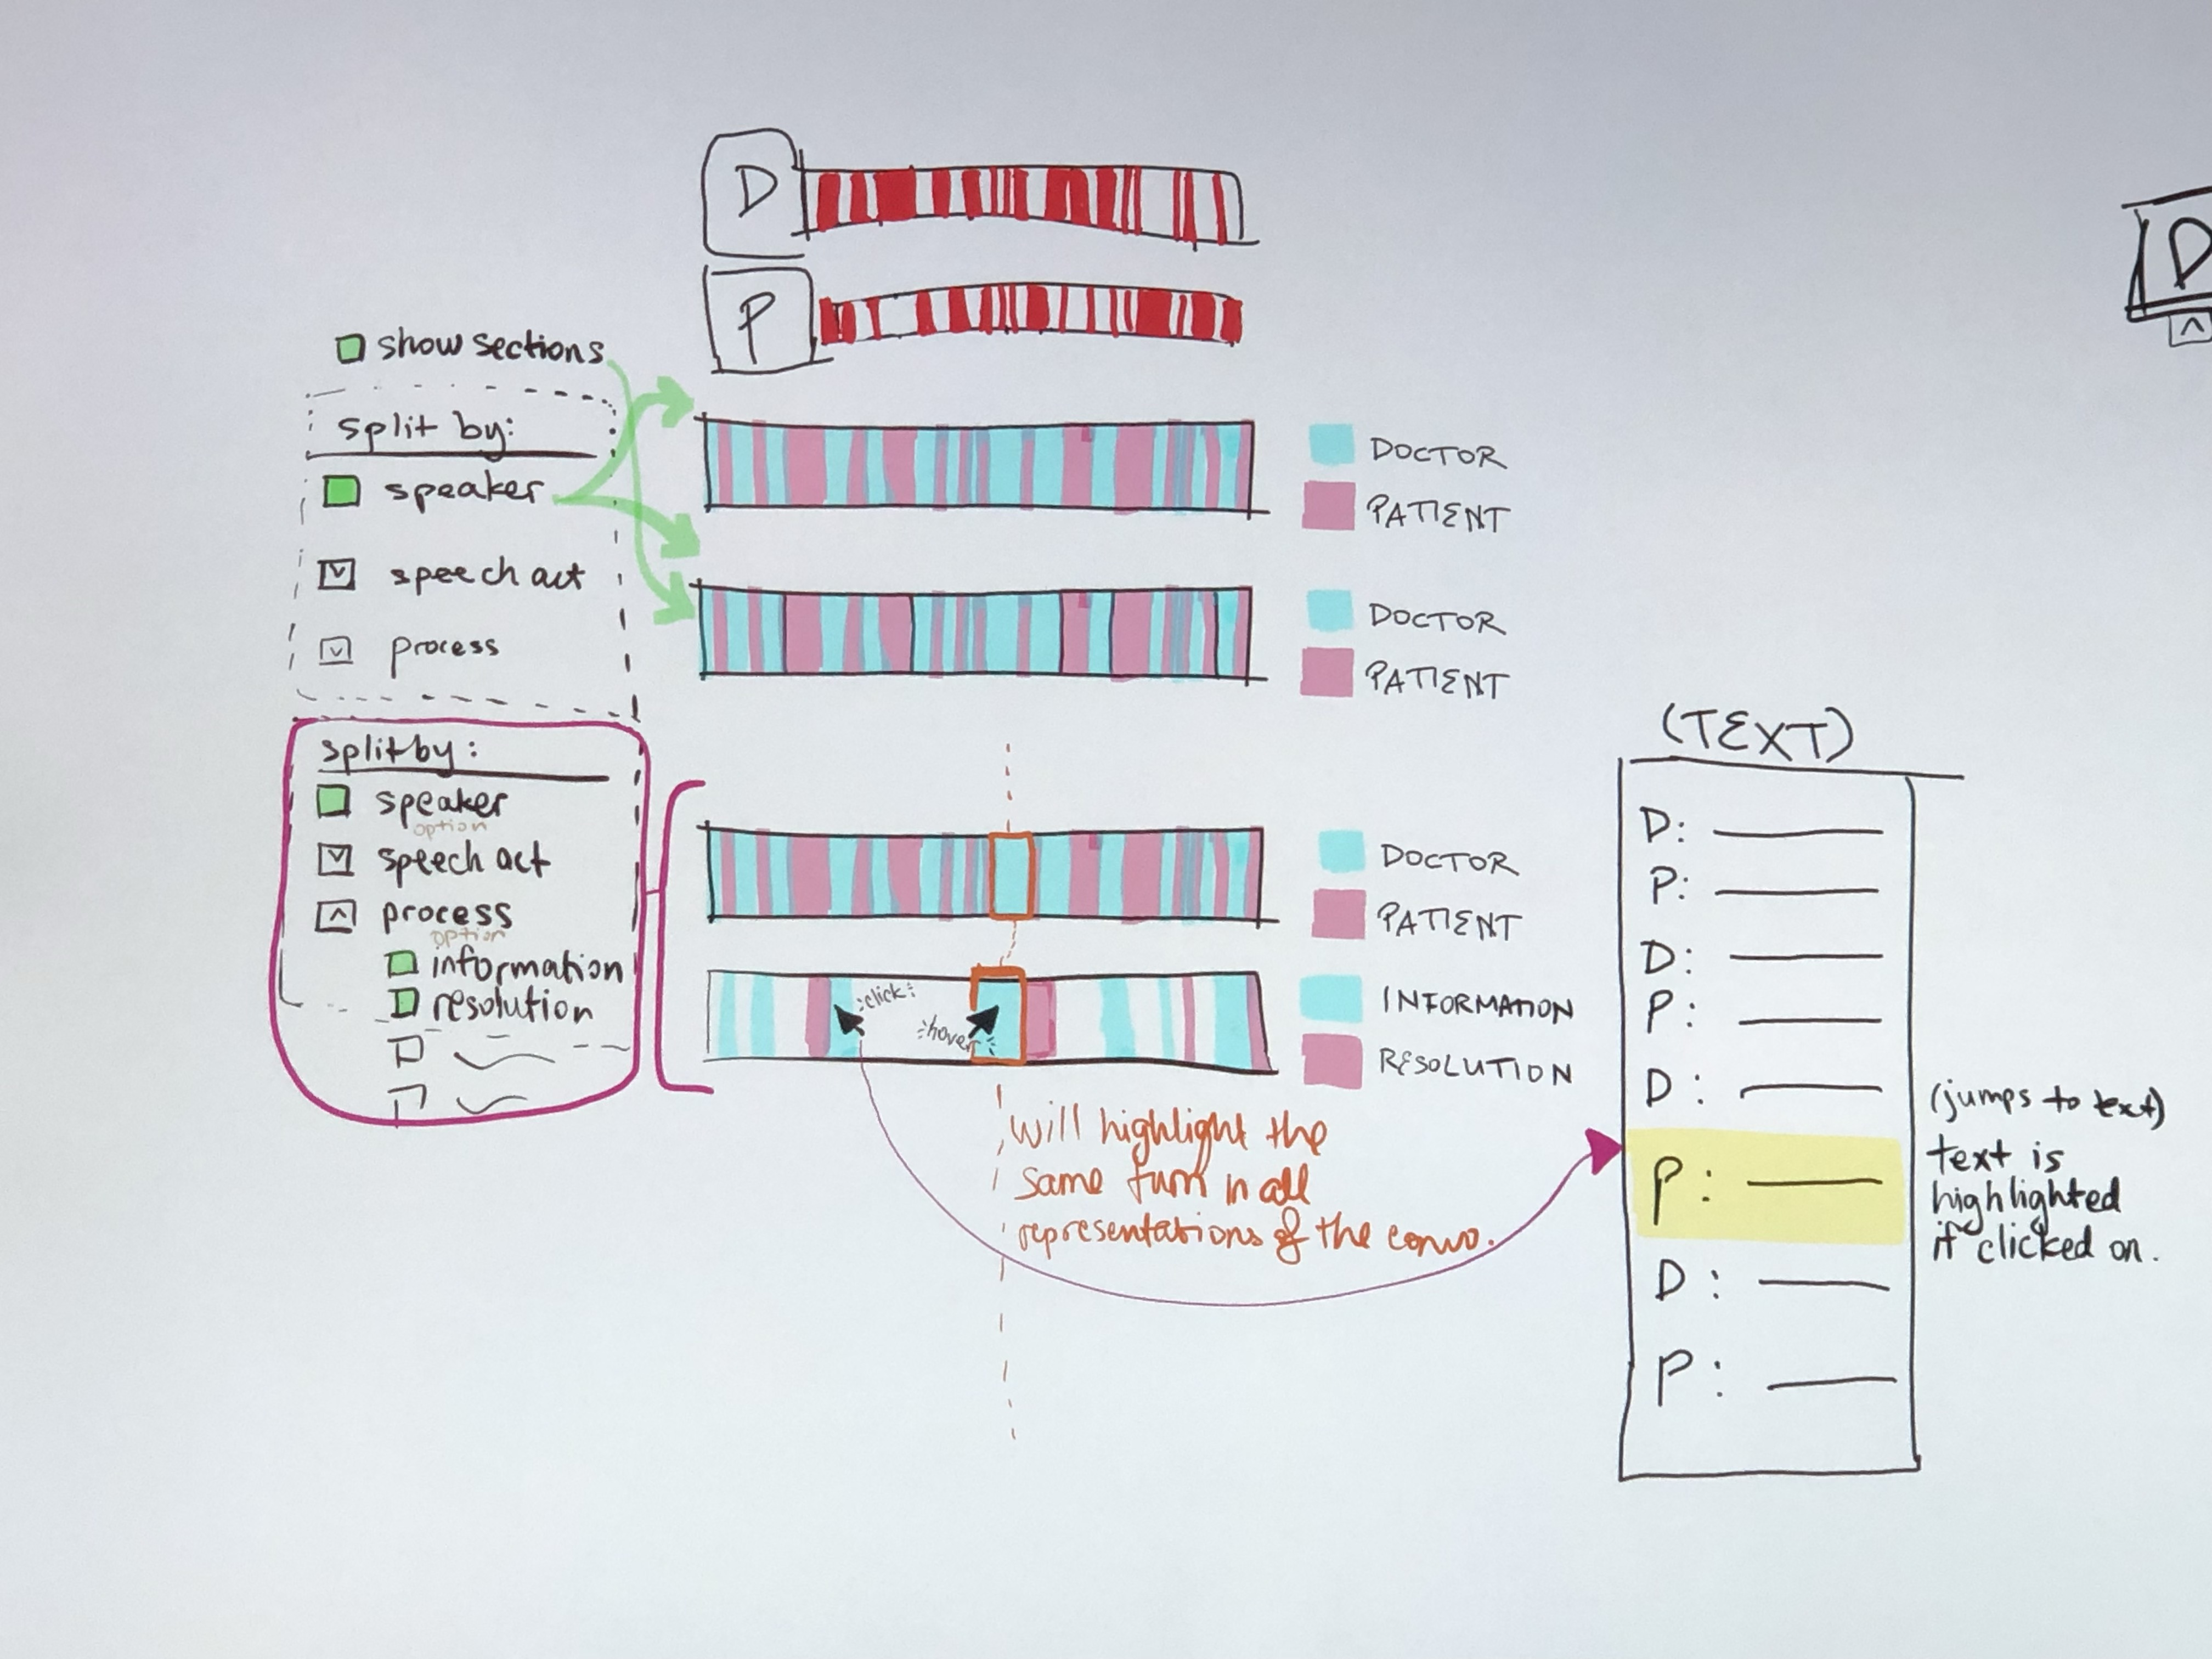 D
P
D
^
show sections
split by:
speaker
speech act
process
DOCTOR
PATIENT
DOCTOR
PATIENT
split by:
speaker
option
speech act
process
option
information
resolution
DOCTOR
PATIENT
click
hover
INFORMATION
RESOLUTION
will highlight the
same turn in all
representations of the convo.
(TEXT)
D:
P:
D:
P:
D:
P:
D:
P:
(jumps to text)
text is
highlighted
if clicked on.